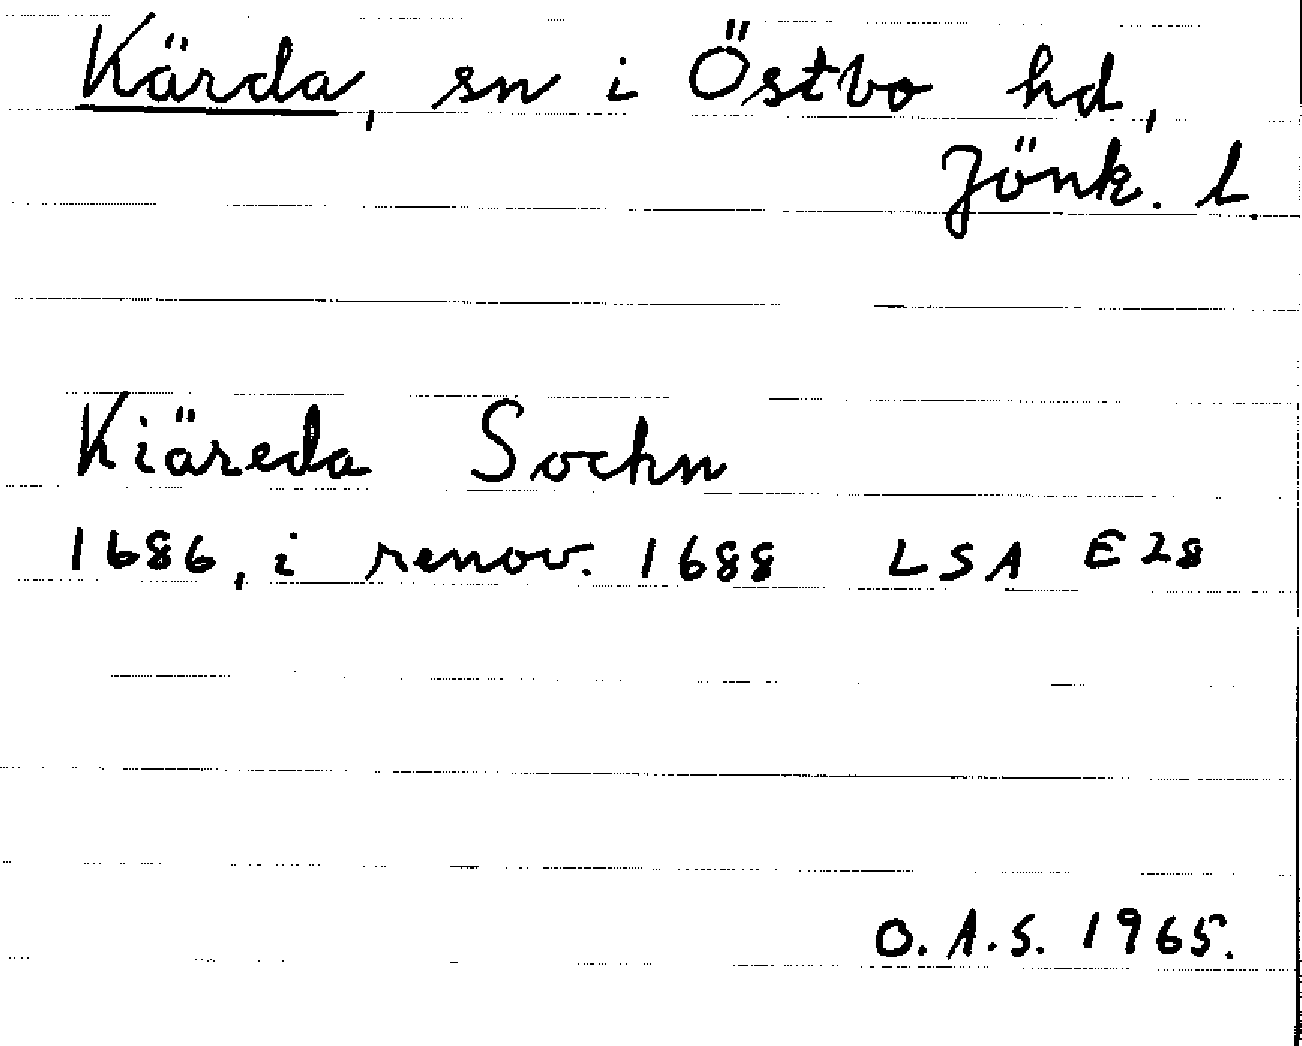 Kärda, sn i Östbo hd,
Jönk. l.
Kiäreda Sochn
1686, i renov. 1688 LSA E28
O.A.S. 1965.